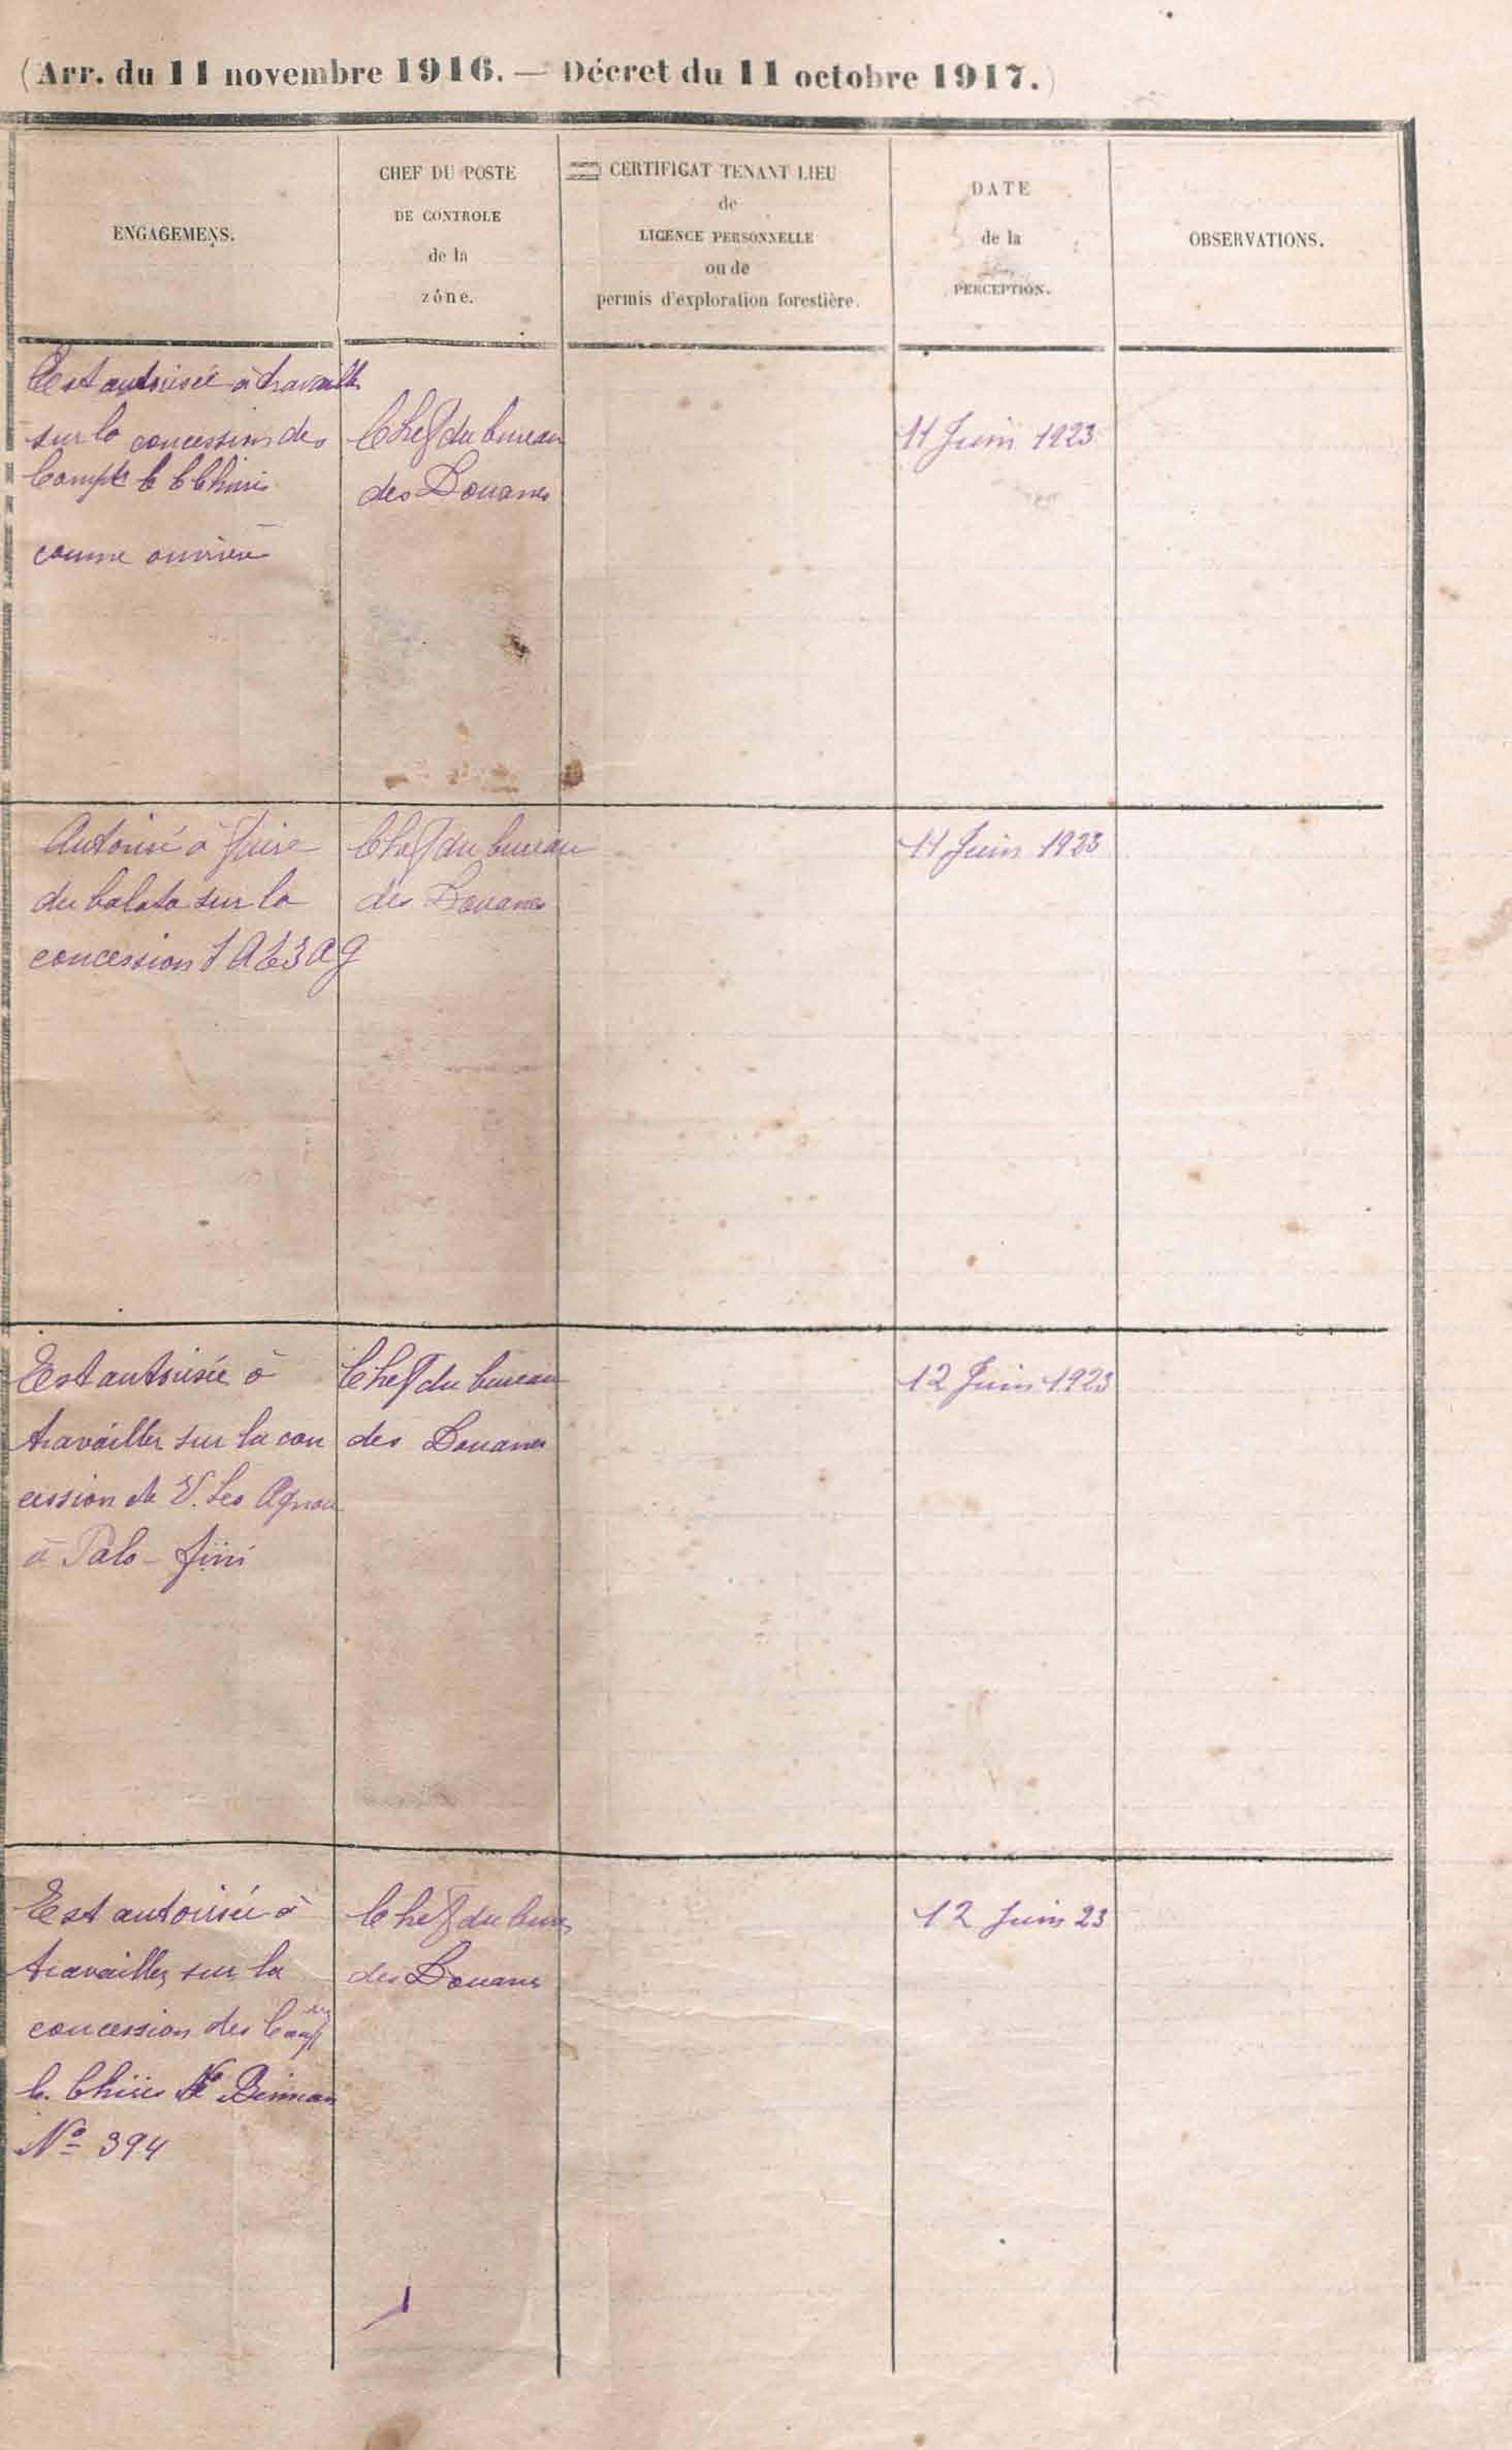 (Arr. du 11 novembre 1916. — Décret du 11 octobre 1917.)
ENGAGEMENS.
CHEF DU POSTE
DE CONTROLE
de la
zône.
CERTIFICAT TENANT LIEU
de
LICENCE PERSONNELLE
ou de
permis d'exploration forestière.
DATE
de la
PERCEPTION.
OBSERVATIONS.
Est autorisée à travailler
sur la concession des
comme ouvrière
Chef du bureau
des Douanes
11 Juin 1923
Autorisé à faire
du balata sur la
concession
Chef du bureau
des Douanes
11 Juin 1923
Est autorisée à
travailler sur la con
cession de V. Leo
à Palo-
Chef du bureau
des Douanes
12 Juin 1923
Est autorisée à
travailler sur la
concession des
C. Chiris
Nº 394
Chef du bureau
des Douanes
12 Juin 23